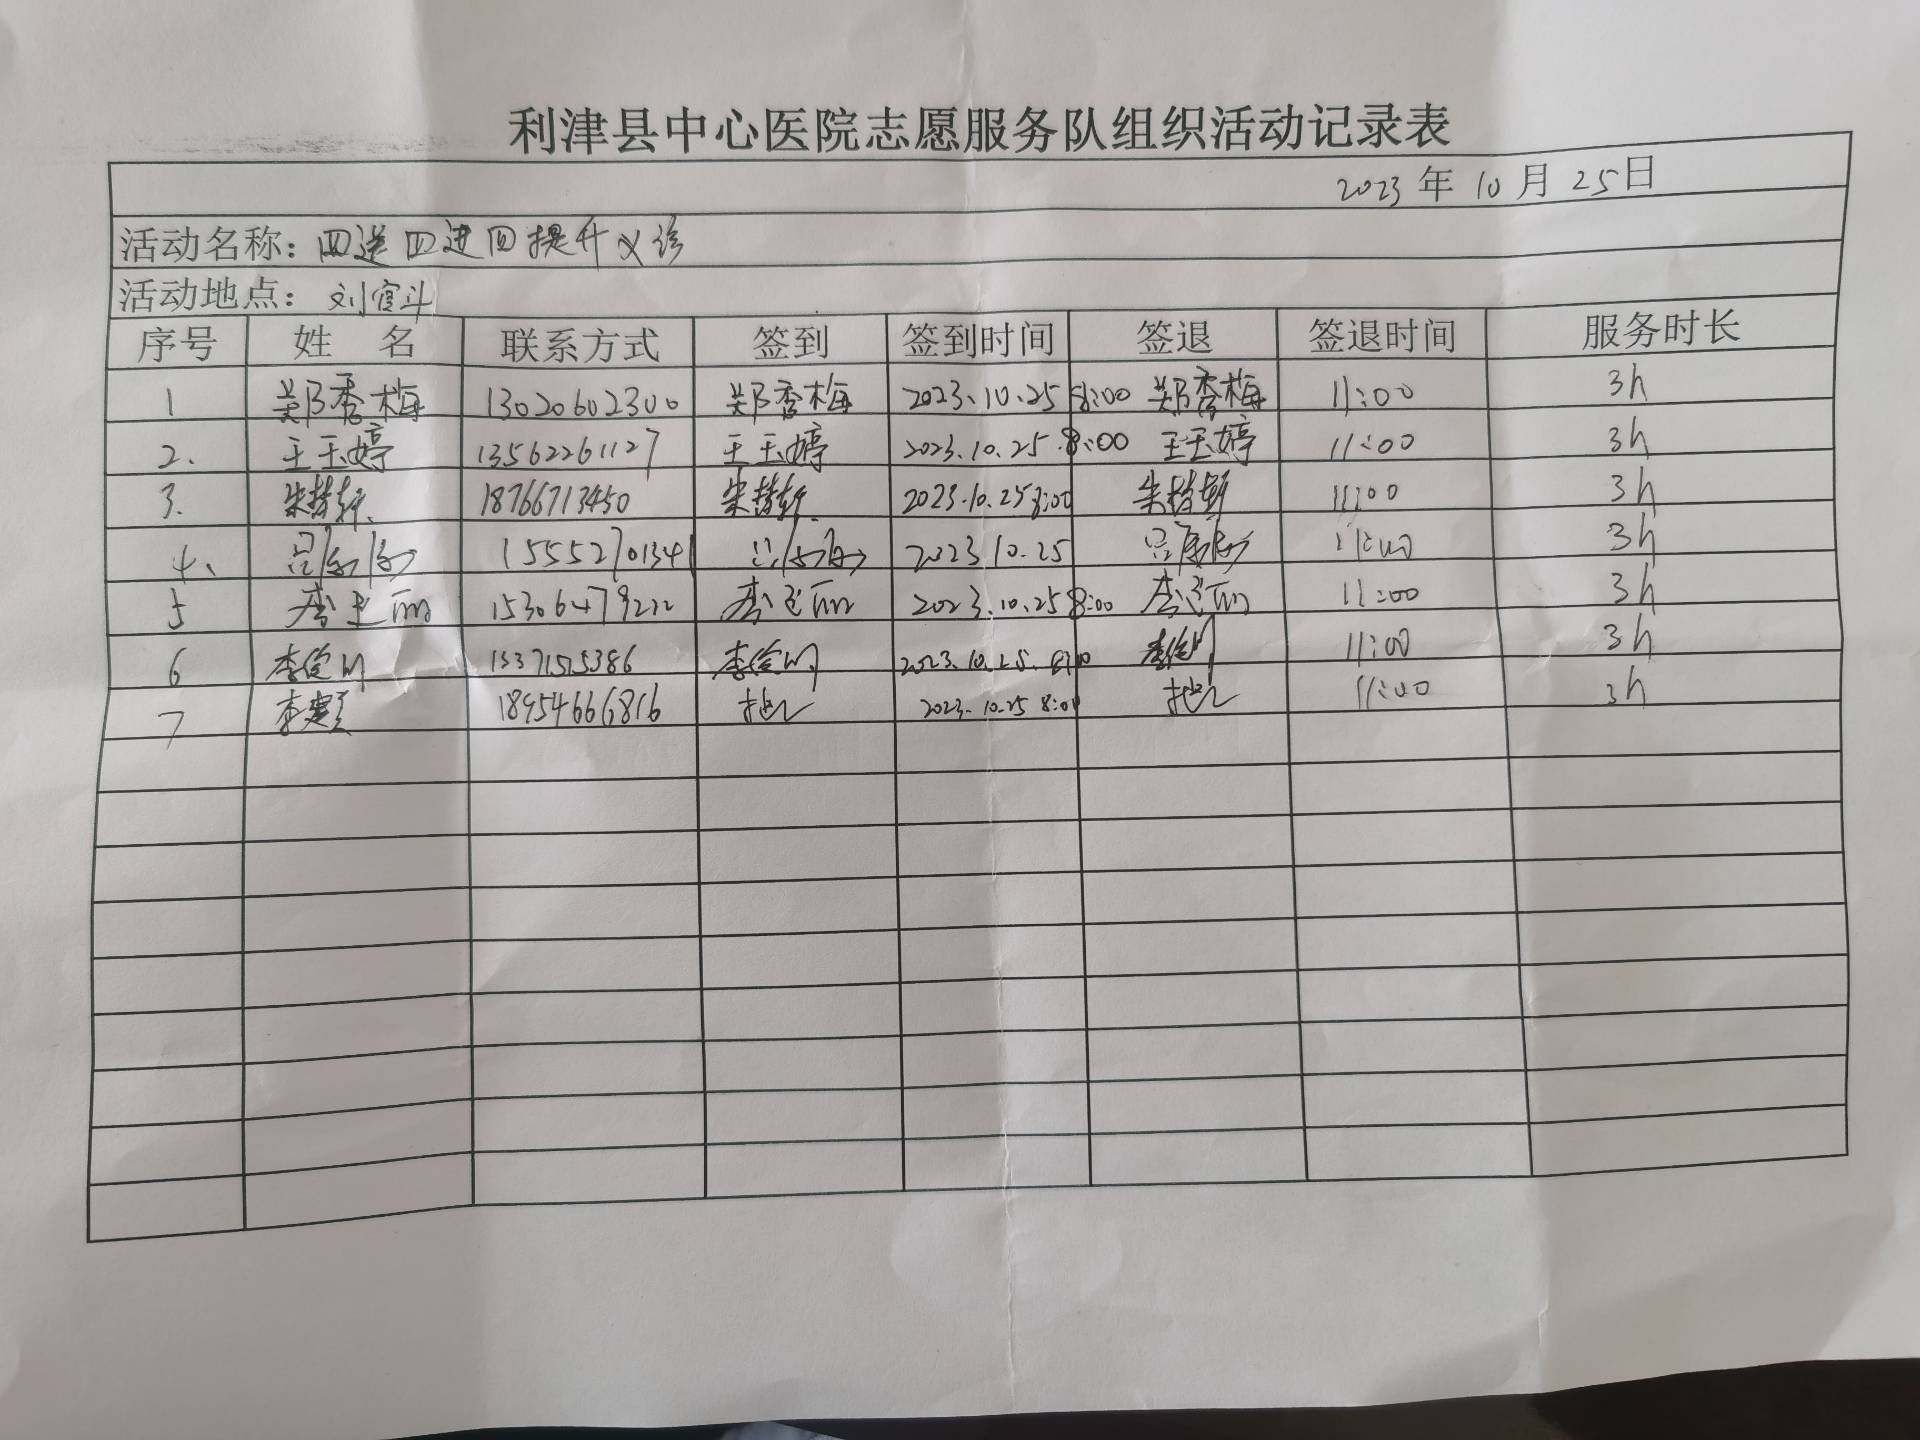 利津县中心医院志愿服务队组织活动记录表
2023 年 10 月 25日
活动名称: 四送四进四提升义诊
活动地点: 刘官斗
序号 姓 名 联系方式 签到 签到时间 签退 签退时间 服务时长
1 郑香梅 13020602300 郑香梅 2023.10.25 8:00 郑香梅 11:00 3h
2. 王玉婷 13562261127 王玉婷 2023.10.25 8:00 王玉婷 11:00 3h
3. 18766713450 2023.10.25 8:00 11:00 3h
4、 15552701341 2023.10.25 11:00 3h
5 15306479222 2023.10.25 8:00 11:00 3h
6 李俊 13371515386 李俊 2023.10.25. 11:00 3h
7 李建 18954666816 2023.10.25 8:00 11:00 3h